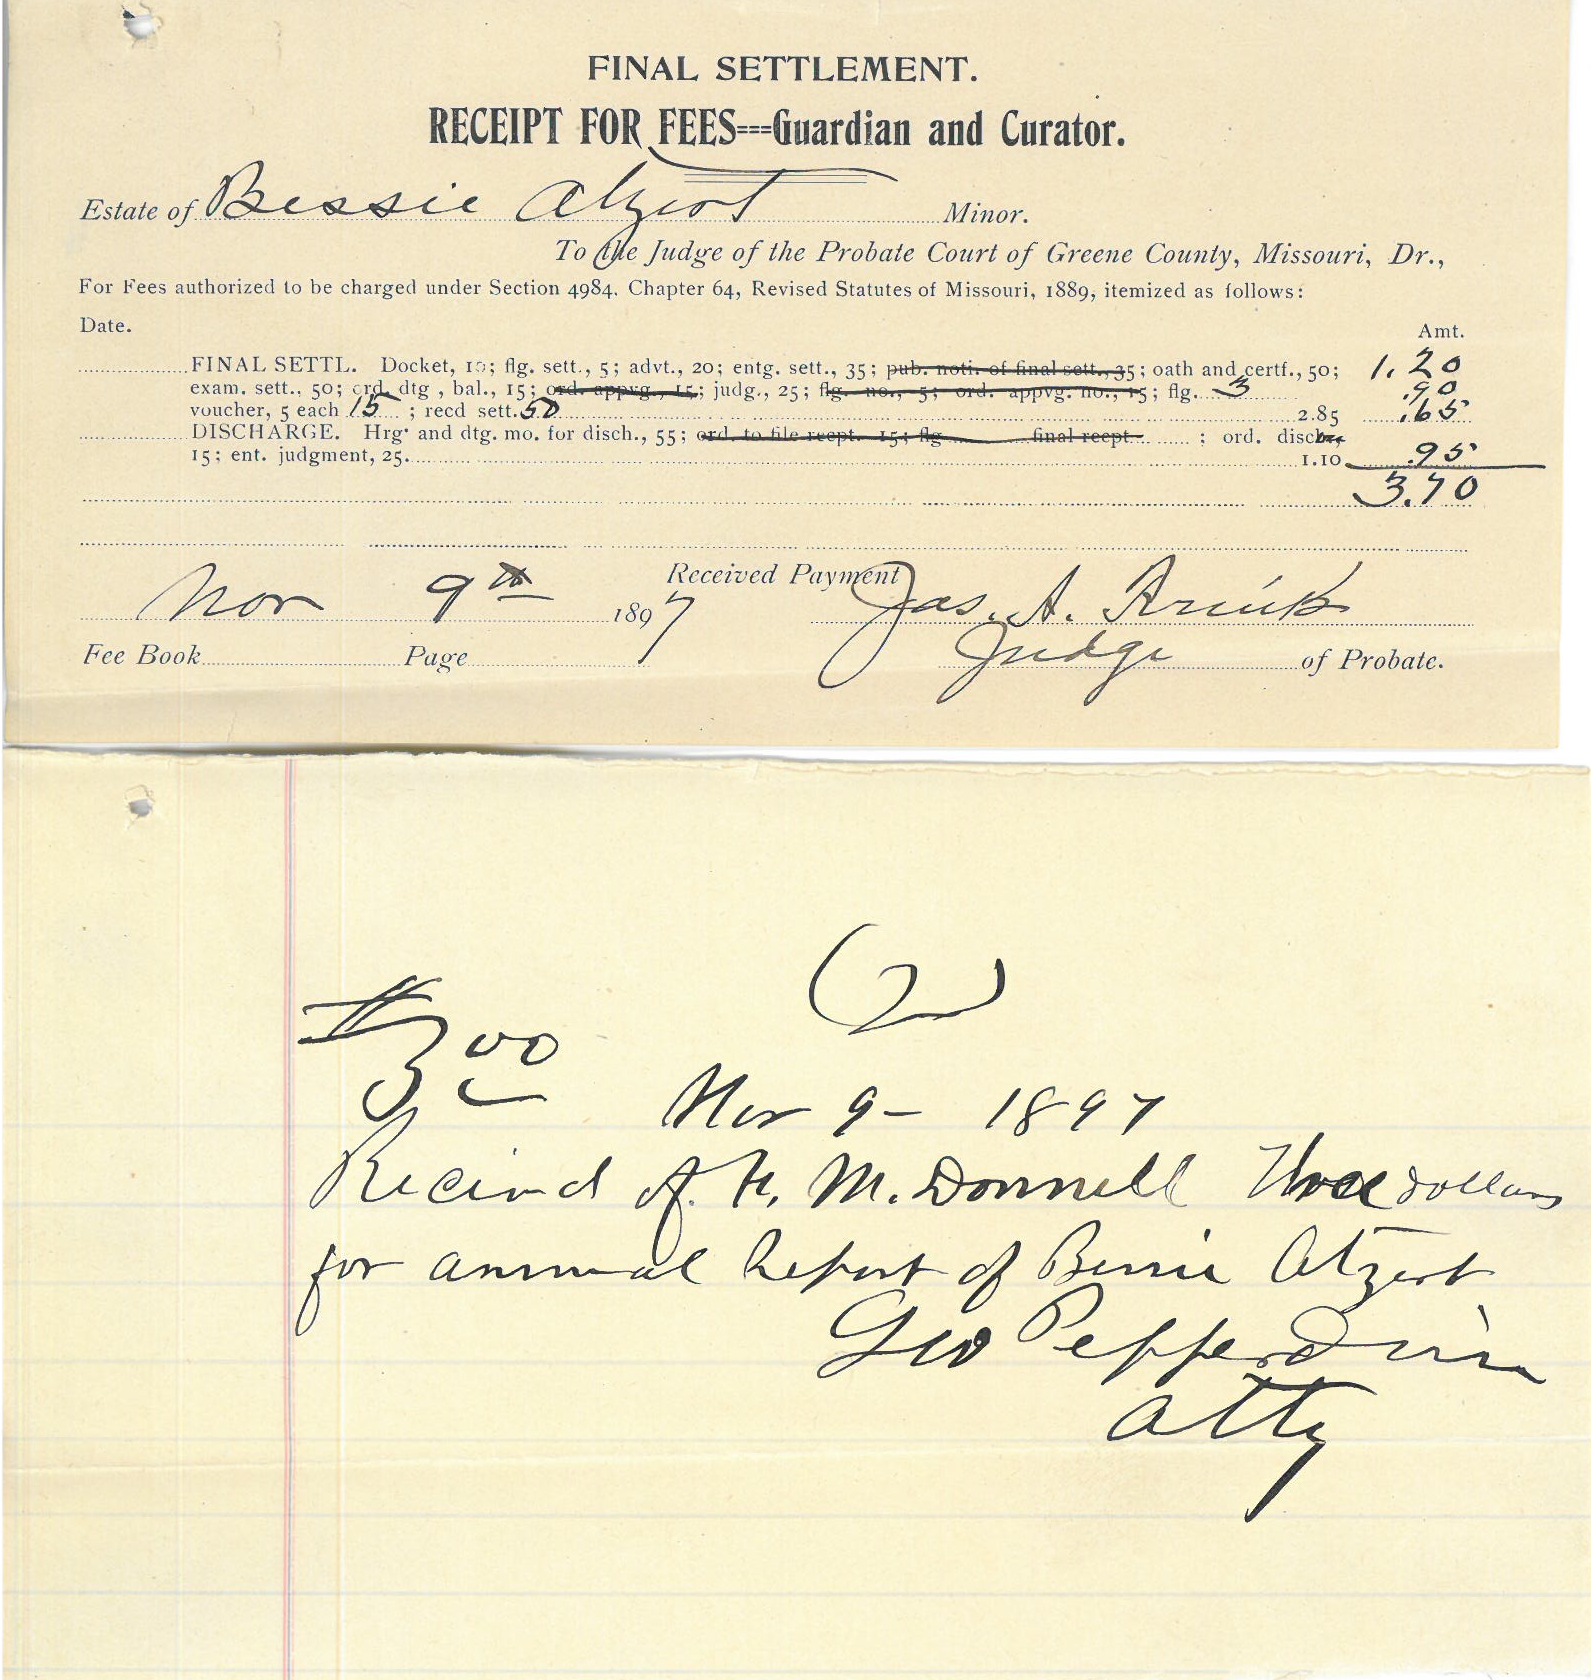 FINAL SETTLEMENT.
RECEIPT FOR FEES===Guardian and Curator.
Estate of Bessie Atzert Minor.
To the Judge of the Probate Court of Greene County, Missouri, Dr.,
For Fees authorized to be charged under Section 4984, Chapter 64, Revised Statutes of Missouri, 1889, itemized as follows:
Date. Amt.
FINAL SETTL. Docket, 10; flg. sett., 5; advt., 20; entg. sett., 35; pub. noti. of final sett., 35; oath and certf., 50; 1.20
exam. sett., 50; ord. dtg, bal., 15; ord. appvg., 15; judg., 25; flg. no., 5; ord. appvg. no., 15; flg. 3 .90
voucher, 5 each 15; recd sett. 50 2.85 .65
DISCHARGE. Hrg. and dtg. mo. for disch., 55; ord. to file recpt. 15; flg final recpt.; ord. disch.,
15; ent. judgment, 25. 1.10 .95
3.70
Received Payment
Nov 9th 1897 Jas. A.
Fee Book Page Judge of Probate.
(2)
$3.00
Nov 9 - 1897
Recievd of A. H. McDonnell Three dollars
for annual Report of Bessie Atzert
Geo Pepperdine
Atty